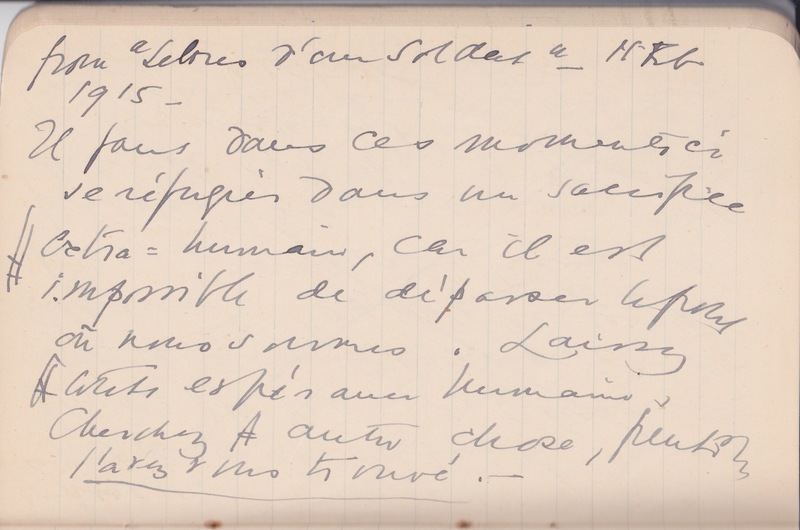 from "Lettres d'un Soldat"
1915 -
Il faut dans ces moments ci
se réfugier dans un sacrifice
extra = humain, car il est
impossible de dépasser le point
où nous sommes. Laissez
toute espérance humaine.
Cherchez autre chose, peut-être
l'avez vous trouvé. -